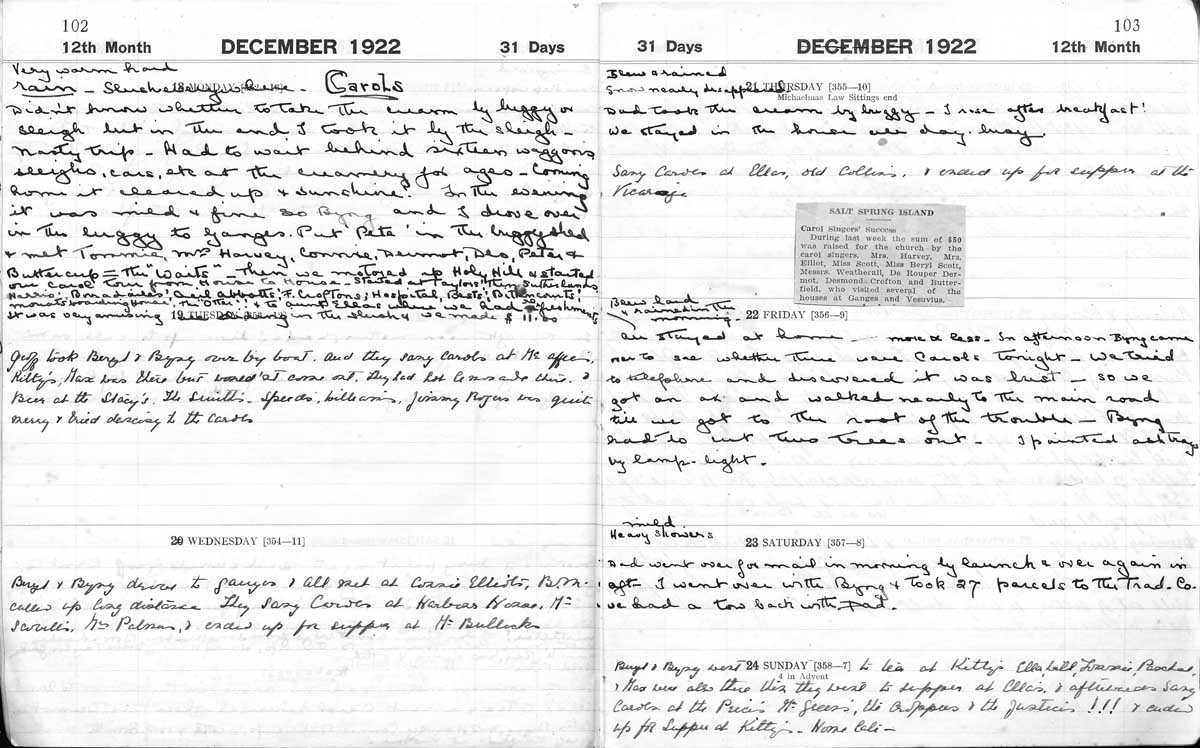 102
12th Month DECEMBER 1922 31 Days
Very warm hard
rain - Slush
18 MONDAY
Carols
Didn't know whether to take the cream by buggy or
sleigh but in the end I took it by the sleigh -
nasty trip - Had to wait behind sixteen waggons
sleighs, cars, etc at the creamery for ages - Coming
home it cleared up & sunshine! In the evening
it was mild & fine so Byng and I drove over
in the buggy to Ganges. Put 'Pete' in the buggy shed
& met Tommie, Mrs Harvey, Connie, Dermot, Des, Peter &
Buttercup = the "Waits" - Then we motored up Holy Hill & started
our Carol tour from House to House - Started at Taylors' then Sutherlands
Harris', Borradailes', Abbotts', F. Croftons', Hospital, Bests', Bittancourts'
Mouats' & Ellas where we had refreshments
It was very amusing in the slush & we made $11.00
19 TUESDAY
Geoff took Beryl & Byng over by boat. And they sang Carols at Mc Afees,
Kitty's, Max was there but would'nt come out. They had hot lemonade there. &
Beer at the Stacy's. The Smiths. Speeds, Williams, Jimmy Rogers was quite
merry & tried dancing to the Carols
20 WEDNESDAY [354—11]
Beryl & Byng drove to Ganges & all met at Connie Elliots,
called up long distance They sang Carols at Harbour House, Mr
Scovills, Mrs Palmer, & ended up for supper at Mr Bullocks
103
31 Days DECEMBER 1922 12th Month
Blew & rained
Snow nearly disappeared
21 THURSDAY [355—10]
Michaelmas Law Sittings end
Dad took the cream by buggy - I rose after breakfast!
We stayed in the house all day. busy
Sang Carols at Ellas, old Collins, & ended up for supper at the
Vicarage
SALT SPRING ISLAND
Carol Singers' Success
During last week the sum of $50
was raised for the church by the
carol singers, Mrs. Harvey, Mrs.
Elliot, Miss Scott, Miss Beryl Scott,
Messrs. Weatherall, De Rouper Der-
mot, Desmond Crofton and Butter-
field, who visited several of the
houses at Ganges and Vesuvius.
Blew hard
& rained in the
morning
22 FRIDAY [356—9]
All stayed at home - more or less - In afternoon Byng came
over to see whether there were Carols tonight - We tried
to telephone and discovered it was bust - so we
got an ax and walked nearly to the main road
till we got to the root of the trouble - Byng
had to cut two trees out - I painted ash trays
by lamp-light.
mild
Heavy showers
23 SATURDAY [357—8]
Dad went over for mail in morning by launch & over again in
aft. I went over with Byng & took 27 parcels to the Trad. Co.
we had a tow back with Dad.
24 SUNDAY [358—7]
4 in Advent
Beryl & Byng went to tea at Kitty's
& Max were also there then they went to supper at Ellas, & afterwards sang
Carols at the Prices Mr Greens, the Croppers & the Justices !!! & ended
up for supper at Kitty's -